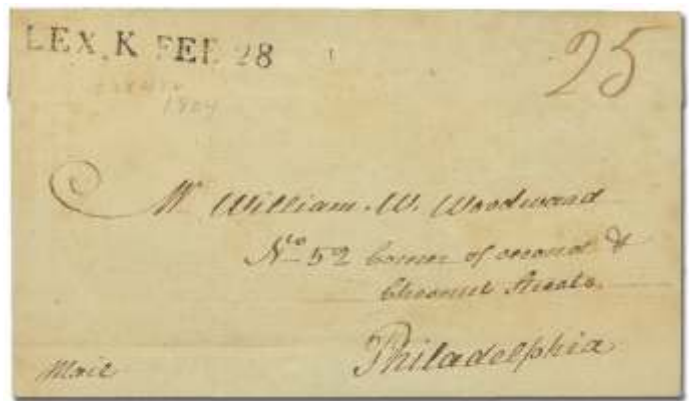 LEX. K FEB 28
25
1804
Mr William. W. Woodward
No 52 Corner of second &
Chesnut Streets.
Philadelphia
Mail